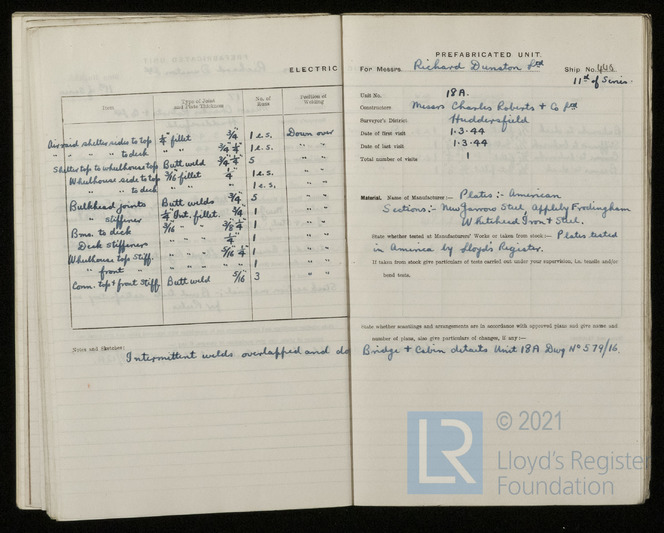 ELECTRIC
Item Type of Joint and Plate Thickness No. of Runs Position of Welding
Air raid shelter sides to top ¼" fillet ¾ 1 e.s. Down over
" " " " to deck " " ¾" ¼" 1 e.s. " "
Shelter top to wheelhouse top Butt weld ¾" ¼" 5 " "
Wheelhouse side to top 3/16" fillet ¼" 1 e.s. " "
" " to deck " " " 1 e.s. " "
Bulkhead joints Butt welds ¾" 5 " "
" stiffener ¼" Int. fillet. ¾" 1 " "
Bms. to deck 3/16 " " 1 " "
Deck stiffeners " " " ¼" 1 " "
Wheelhouse top Stiff. " " " 5/16 ¼" 1 " "
" front " " " " " 1 " "
Conn. top & front Stiff. Butt weld 5/16 3 " "
Notes and Sketches:
Intermittent welds overlapped and do
PREFABRICATED UNIT.
For Messrs. Richard Dunston Ltd Ship No.
11th of Series.
Unit No. 18A.
Constructors Messrs Charles Roberts & Co Ltd
Surveyor's District Huddersfield
Date of first visit 1.3.44
Date of last visit 1.3.44
Total number of visits 1
Material. Name of Manufacturer:— Plates:- American
Sections:- New Jarrow Steel, Appleby Frodingham
Whitehead Iron & Steel.
State whether tested at Manufacturers' Works or taken from stock:— Plates tested
in America by Lloyds Register.
If taken from stock give particulars of tests carried out under your supervision, i.e. tensile and/or
bend tests.
State whether scantlings and arrangements are in accordance with approved plans and give names and
number of plans, also give particulars of changes, if any:—
Bridge & Cabin details Unit 18A Dwg No 579/16.
LR
© 2021
Lloyd's Register
Foundation